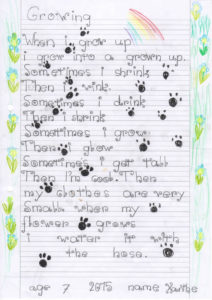 Growing
When I grow up
i grow into a grown up.
Sometimes i shrink
Then i wink.
Sometimes i drink
Then i shrink
Sometimes i grow
Then i glow
Sometimes i get tall
Then I'm cool. Then
my clothes are very
Small when my
flower grows
i water it with
the hose.
age 7 2015 name Xanthe